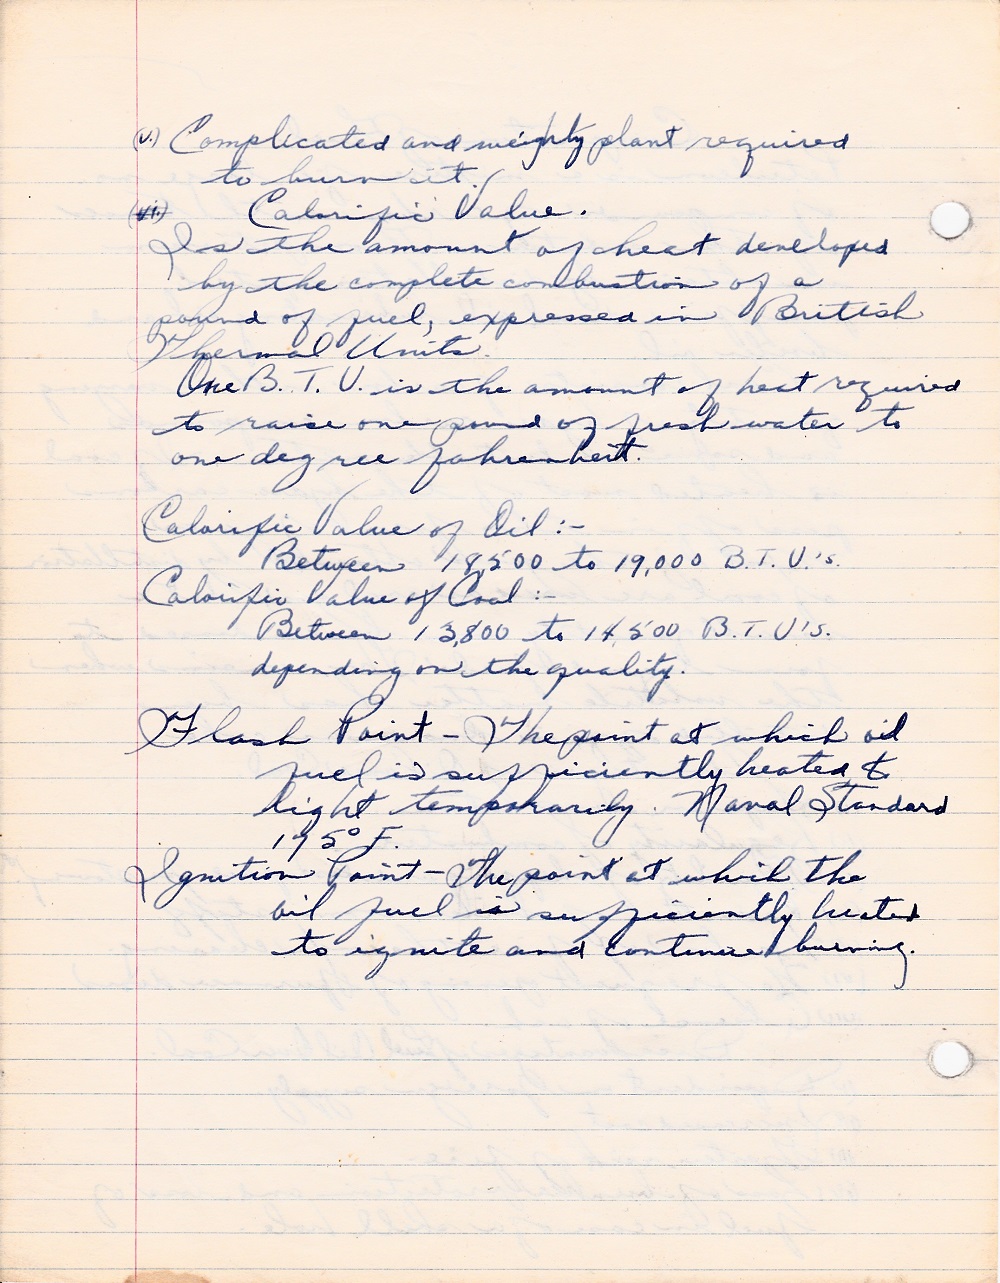 (v.) Complicated and weighty plant required
to burn it.
(vi.) Calorific Value.
Is the amount of heat developed
by the complete combustion of a
pound of fuel, expressed in British
Thermal Units.
One B. T. U. is the amount of heat required
to raise one pound of fresh water to
one degree fahrenheit.
Calorific Value of Oil :-
Between 18,500 to 19,000 B.T.U.'s.
Calorific Value of Coal :-
Between 13,800 to 14,500 B.T.U's.
depending on the quality.
Flash Point - The point at which oil
fuel is sufficiently heated to
light temporarily. Naval Standard
175° F.
Ignition Point - The point at which the
oil fuel is sufficiently heated
to ignite and continue burning.